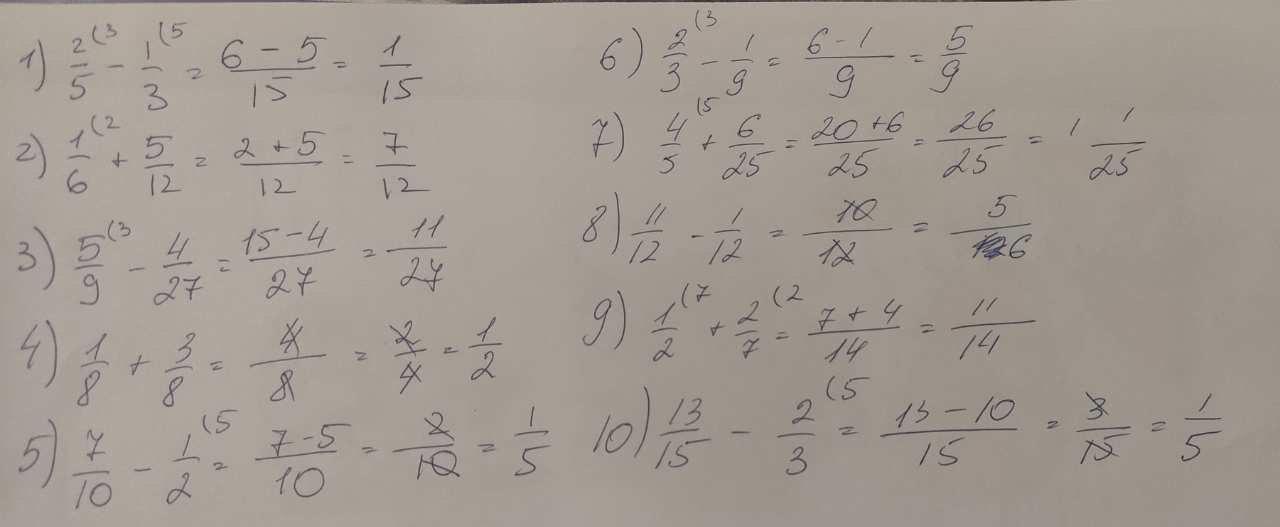 1) 2/5 (3 - 1/3 (5 = 6 - 5/15 = 1/15
2) 1/6 (2 + 5/12 = 2 + 5/12 = 7/12
3) 5/9 (3 - 4/27 = 15 - 4/27 = 11/27
4) 1/8 + 3/8 = 4/8 = 2/4 = 1/2
5) 7/10 - 1/2 (5 = 7 - 5/10 = 2/10 = 1/5
6) 2/3 (3 - 1/9 = 6 - 1/9 = 5/9
7) 4/5 (5 + 6/25 = 20 + 6/25 = 26/25 = 1 1/25
8) 11/12 - 1/12 = 10/12 = 5/6
9) 1/2 (7 + 2/7 (2 = 7 + 4/14 = 11/14
10) 13/15 - 2/3 (5 = 13 - 10/15 = 3/15 = 1/5